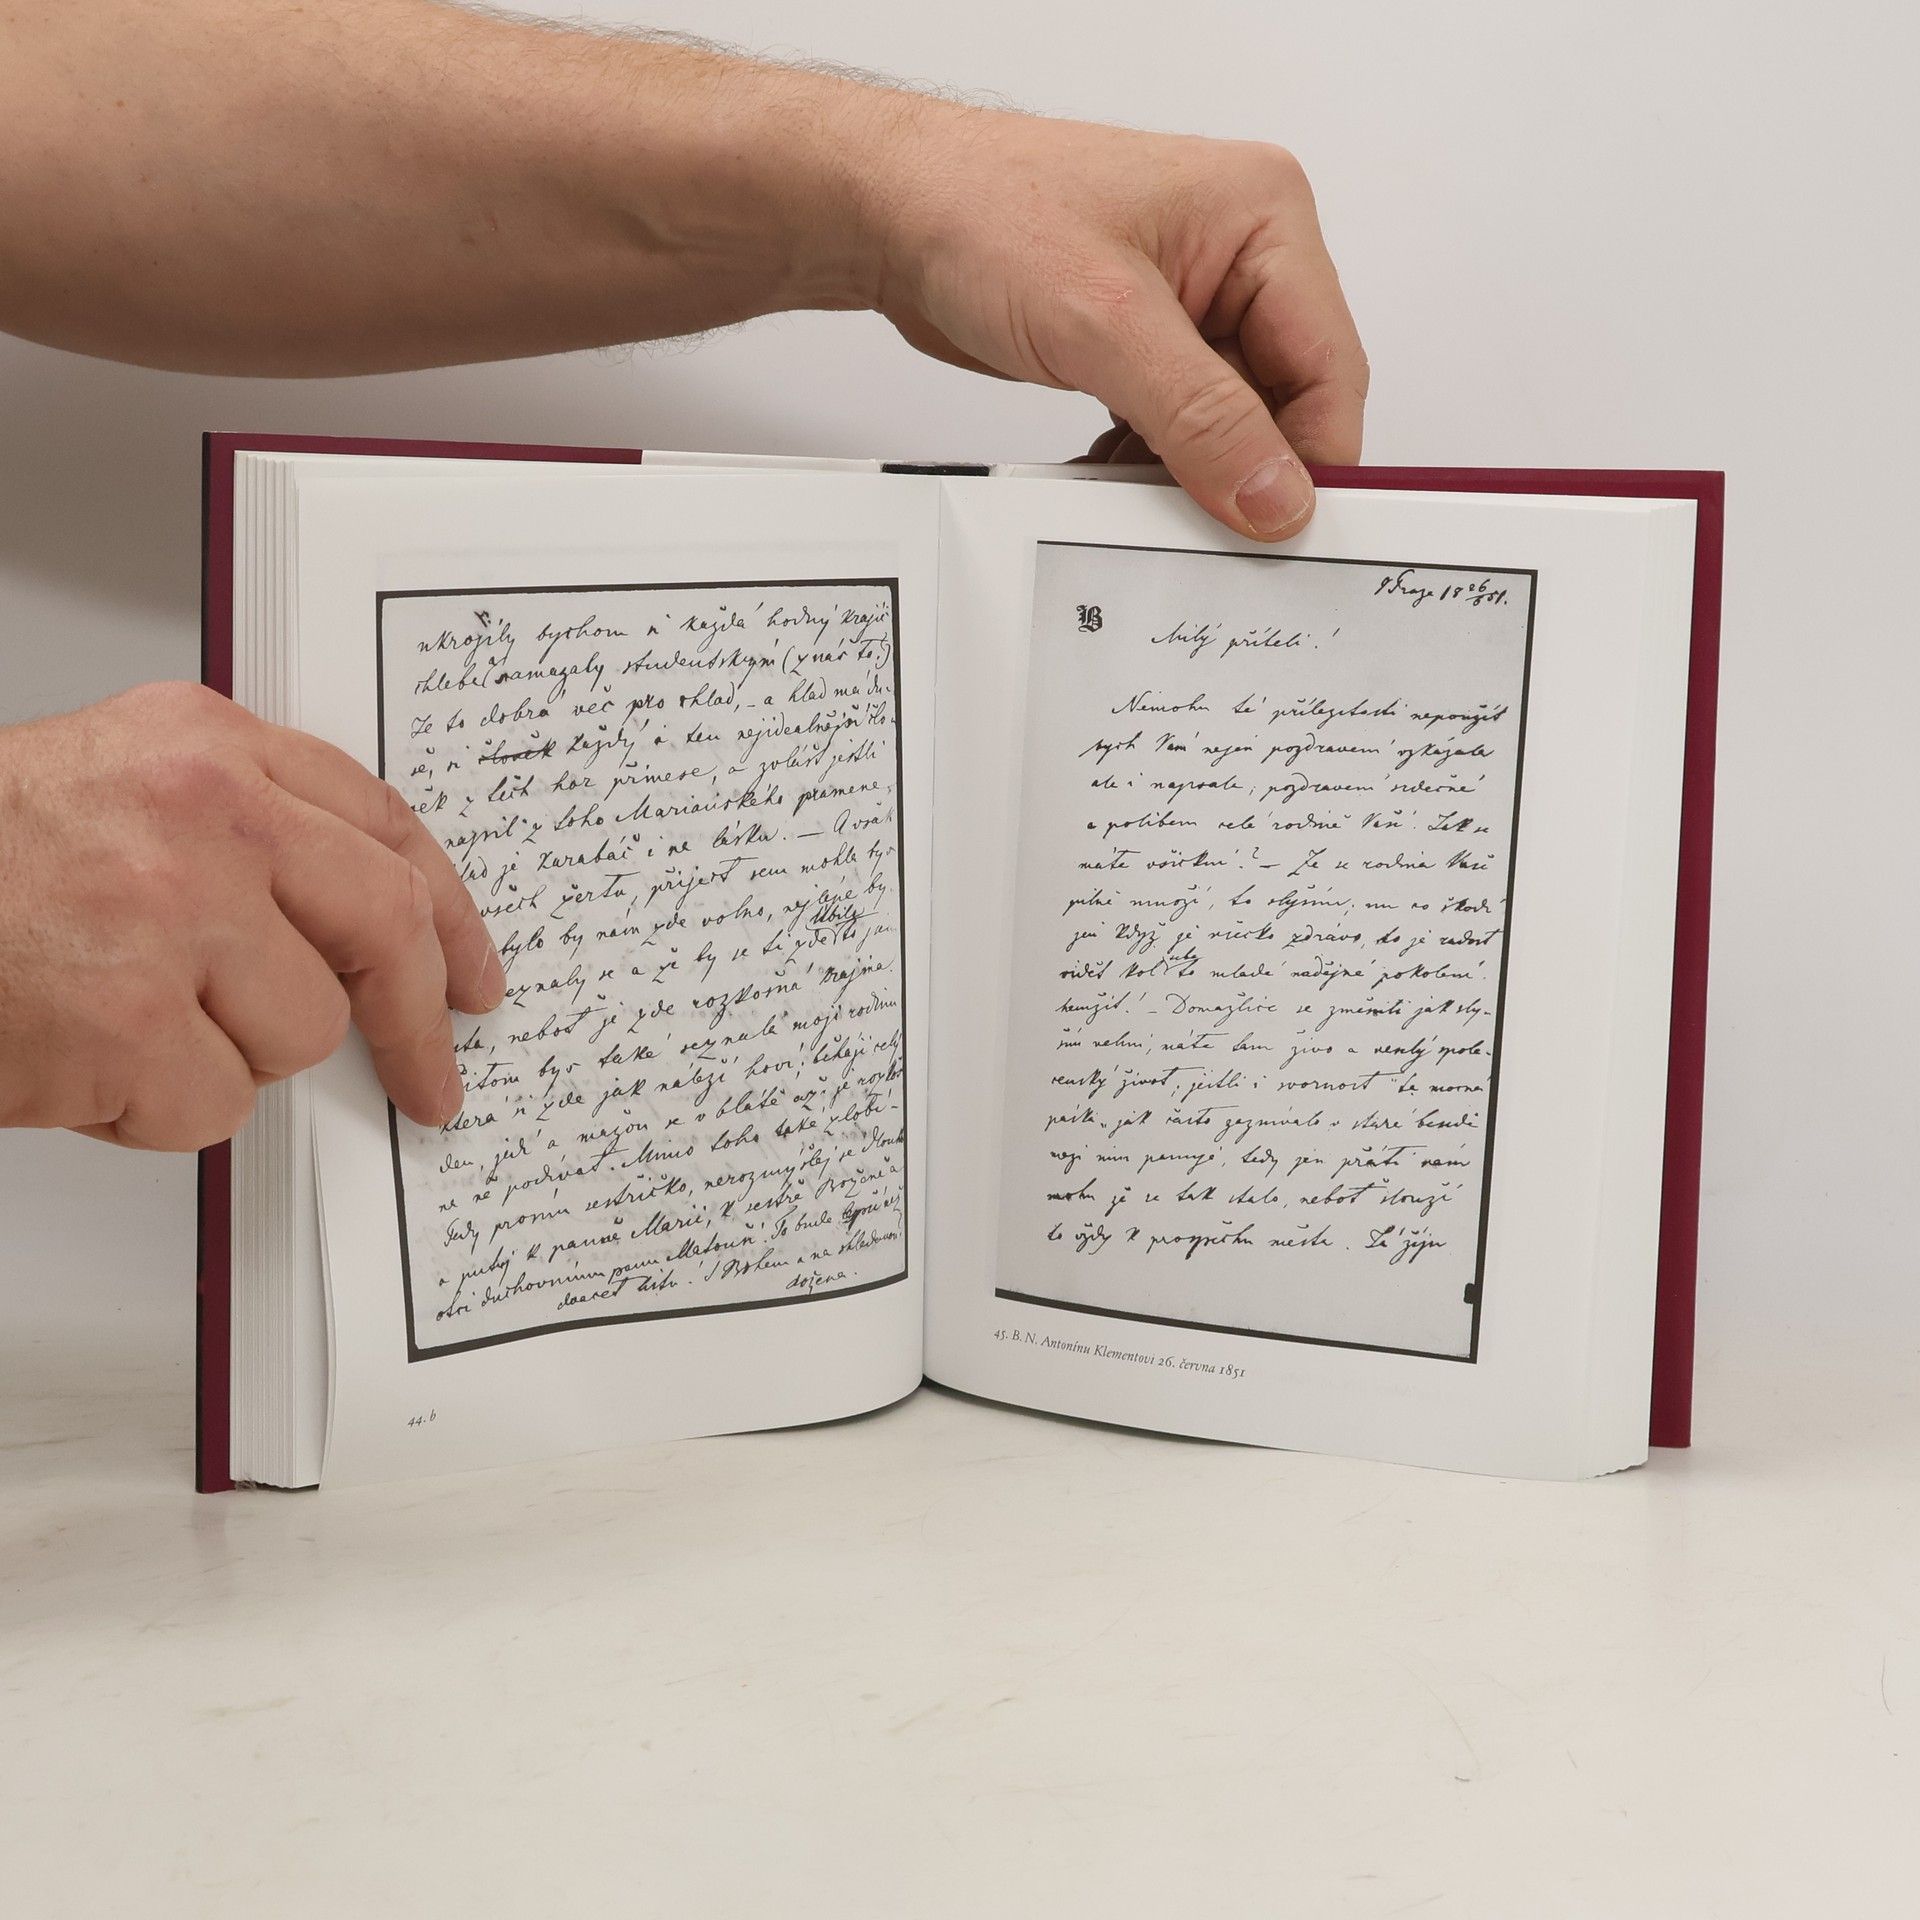 ukrojily bychom si každá hodný krajíc
chleba (namazaly studentským (znáš to?)
Je to dobrá věc pro chlad, – a hlad má du-
še, si člověk každý i ten nejidealnější člo-
věk z těch hor přinese, a zvlášť jestli
napil z toho Mariánského pramene,
hlad je karabáč i na lásku. — Avšak
všech žertů, přijeď sem mohla bys
bylo by nám zde volno, nejlépe by
seznaly se a že by se ti zde líbilo
neboť je zde rozkošná krajina.
Přitom bys také seznala moji rodinu
která si zde jak náleží hoví; běhají celý
den, jedí a mažou se v blátě až je rozkoš
na ně podívat. Mimo toho také
Tedy prosím sestřičko, nerozmýšlej se dlouho
a putuj k panně Marii, k sestře Boženě a
otci duchovnímu panu Matouši! To bude
S Bohem a na shledanou!
Božena.
44. b
Praze 18 26/6 51.
B
Milý příteli!
Nemohu té příležitosti nepoužít
bych Vám nejen pozdravení vzkázala
ale i napsala; pozdravení srdečné
a políbení celé rodině Vaší. Jak se
máte všickni? — Že se rodina Vaše
pilně množí, to slyším; nu co škodí
jen když je všecko zdrávo, to je radost
vidět kol sebe to mladé nadějné pokolení
hemžit! – Domažlice se změnili jak sly-
ším velmi, máte tam živo a veselý spole-
čenský život; jestli i svornost "ta mocná
páska" jak často zaznívalo v staré besedě
mezi nimi panuje, tedy jen přáti vám
mohu že se tak stalo, neboť slouží
to vždy k prospěchu města. Já žiju
45. B. N. Antonínu Klementovi 26. června 1851